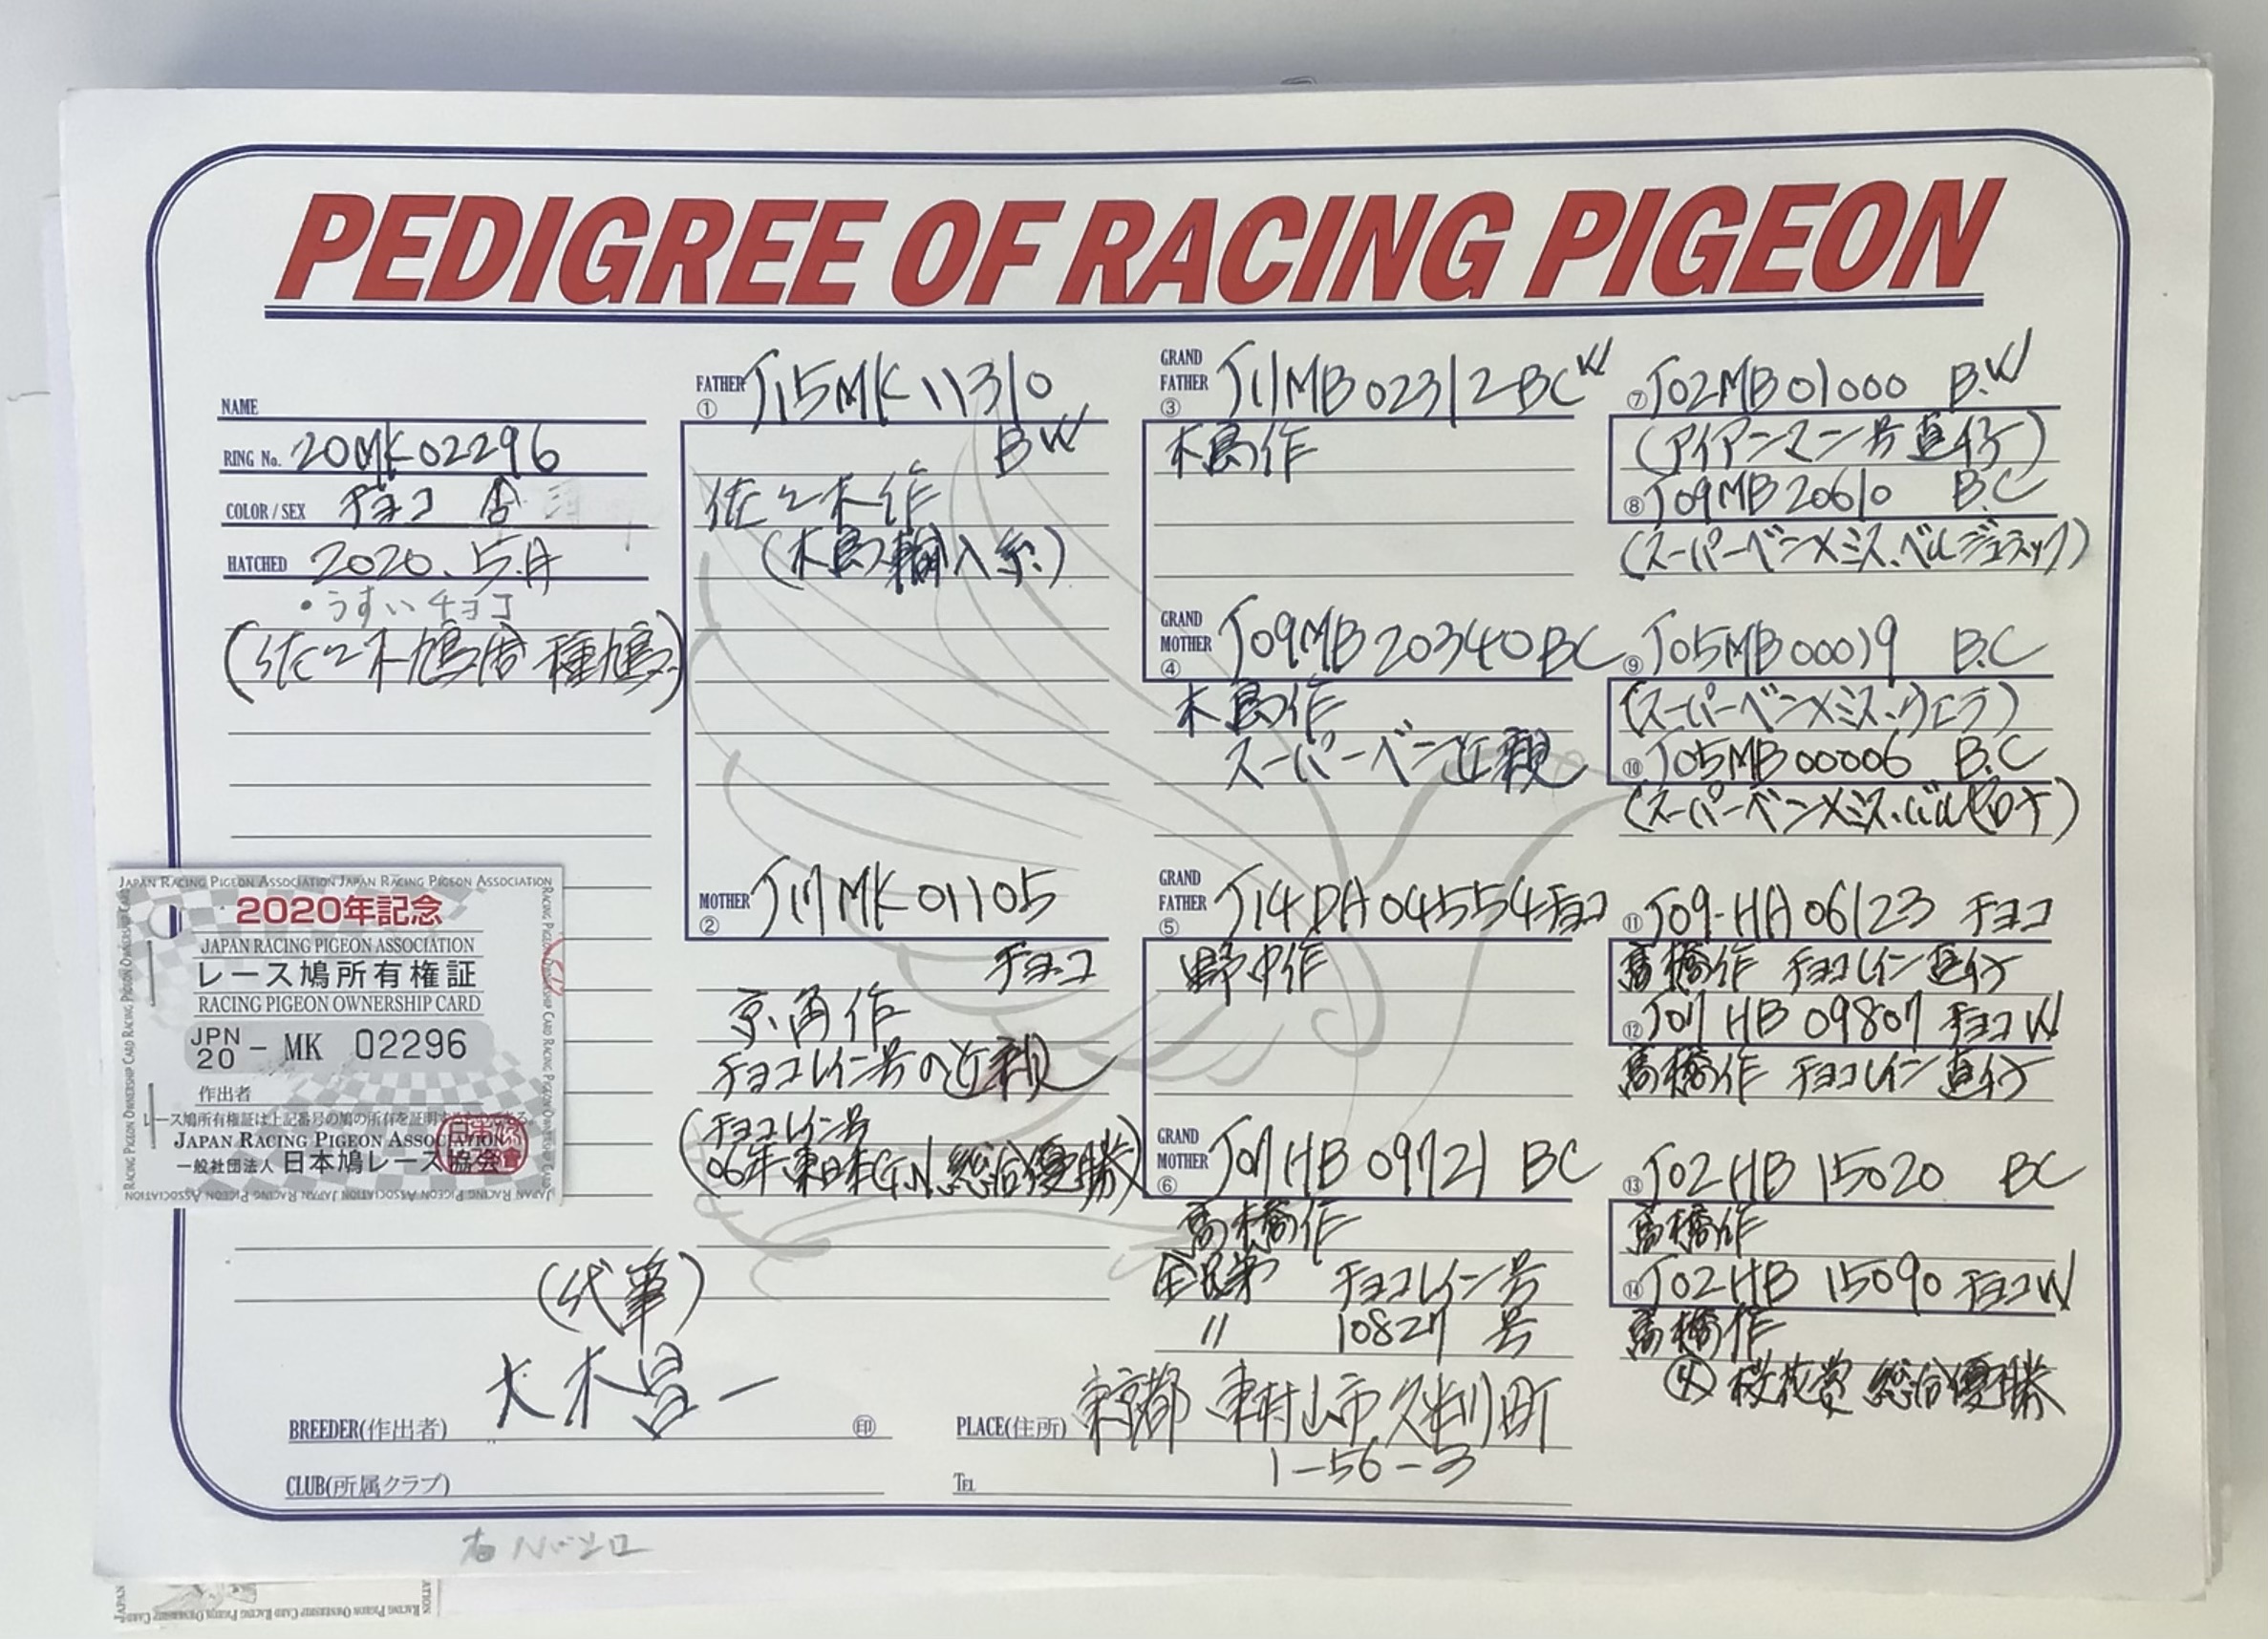 PEDIGREE OF RACING PIGEON
NAME
RING No. 20MK02296
COLOR / SEX チョコ
HATCHED 2020.5月
・うすいチョコ
(佐々木鳩舎種鳩)
JAPAN RACING PIGEON ASSOCIATION JAPAN RACING PIGEON ASSOCIATION
2020年記念
JAPAN RACING PIGEON ASSOCIATION
レース鳩所有権証
RACING PIGEON OWNERSHIP CARD
JPN 20 - MK 02296
作出者
レース鳩所有権証は上記番号の鳩の所有を証明するものである。
JAPAN RACING PIGEON ASSOCIATION
一般社団法人 日本鳩レース協会
FATHER ① J15MK11310
BW
佐々木作
(木島輸入系)
MOTHER ② J17MK01105
チョコ
京角作
チョコレイン号の近親
(チョコレイン号
06年東日本GN総合優勝)
GRAND FATHER ③ J11MB02312 BCW
木島作
GRAND MOTHER ④ J09MB20340 BC
木島作
スーパーベン近親
GRAND FATHER ⑤ J14DA04554チョコ
野中作
GRAND MOTHER ⑥ J07HB09721 BC
高橋作
全兄弟 チョコレイン号
〃 10827 号
⑦ J02MB01000 B.W
(アイアンマン号直仔)
⑧ J09MB20610 BC
(スーパーベン×ミス.ベルジュラック)
⑨ J05MB00019 B.C
(スーパーベン×ミス.)
⑩ J05MB00006 B.C
(スーパーベン×ミス.バルセロナ)
⑪ J09-HA06123 チョコ
高橋作 チョコレイン直仔
⑫ J07HB09807 チョコW
高橋作 チョコレイン直仔
⑬ J02HB15020 BC
高橋作
⑭ J02HB15090 チョコW
高橋作
桜花賞 総合優勝
(代筆)
BREEDER(作出者) 大木昌一 ㊞
CLUB(所属クラブ)
PLACE(住所) 東京都 東村山市久米川町
1-56-3
TEL